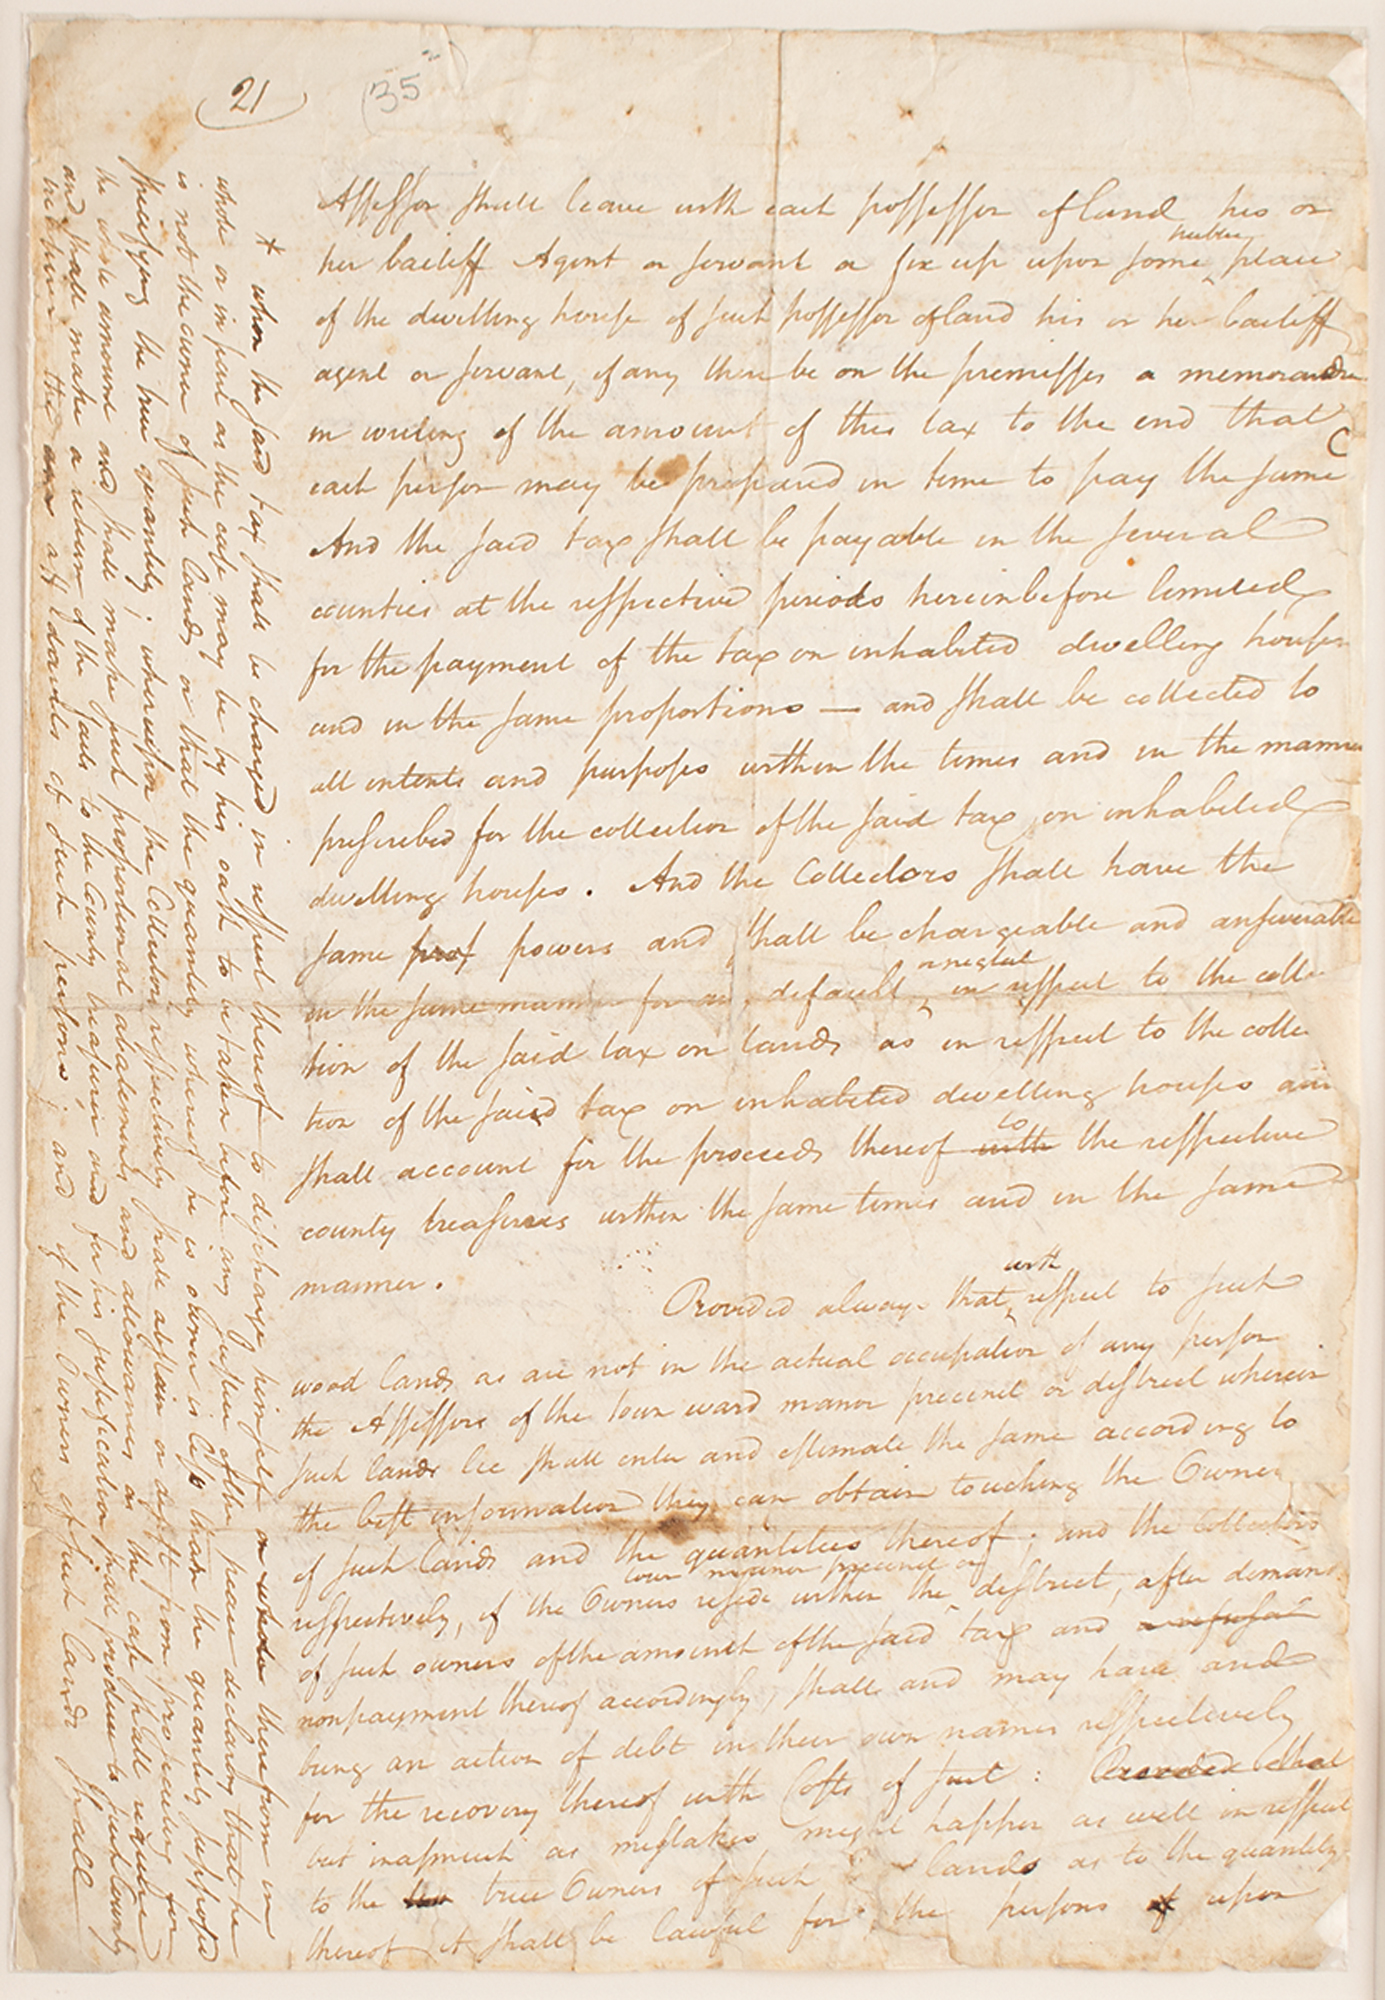 21
35
Assessor shall leave with each possessor of land his or
her bailiff Agent or servant or fix up upon some public place
of the dwelling house of such possessor of land his or her bailiff
agent or servant, if any there be on the premisses a memorandum
in writing of the amount of this tax to the end that
each person may be prepared in time to pay the same
And the said tax shall be payable in the several
counties at the respective periods hereinbefore limited
for the payment of the tax on inhabited dwelling houses
and in the same proportions — and shall be collected to
all intents and purposes within the times and in the manner
prescribed for the collection of the said tax on inhabited
dwelling houses. And the Collectors shall have the
same prof powers and shall be chargeable and answerable
in the same manner for any default or neglect in respect to the collec
tion of the said tax on lands as in respect to the collec
tion of the said tax on inhabited dwelling houses and
shall account for the proceeds thereof with to the respective
county treasurers within the same times and in the same
manner.
Provided always that with respect to such
wood lands as are not in the actual occupation of any person
the Assessors of the town ward manor precinct or district wherein
such lands lie shall enter and estimate the same according to
the best information they can obtain touching the Owners
of such lands and the quantities thereof; and the Collectors
respectively, if the Owners reside within the town manor precinct or district, after demand
of such owners of the amount of the said tax and a refusal
nonpayment thereof accordingly, shall and may have and
bring an action of debt in their own names respectively
for the recovery thereof with Costs of suit: Provided that
but inasmuch as mistakes might happen as well in respect
to the true Owners of such lands as to the quantity
thereof it shall be lawful for the persons of upon
* whom the said tax shall be charged in respect thereof to discharge himself or herself therefrom in
whole or in part as the case may be by his oath to be taken before any Justice of the peace declaring that he
is not the owner of such lands or that the quantity whereof he is owner is less than the quantity supposed
specifying the true quantity; whereupon the Collectors respectively shall abstain or desist from prosecuting for
the whole amount and shall make such proportional abatements and allowances as the case shall require
and shall make a return of the facts to the County treasurer and for his justification shall produce to such County
treasurer the affidavits of such persons; and if the Owners of such lands shall